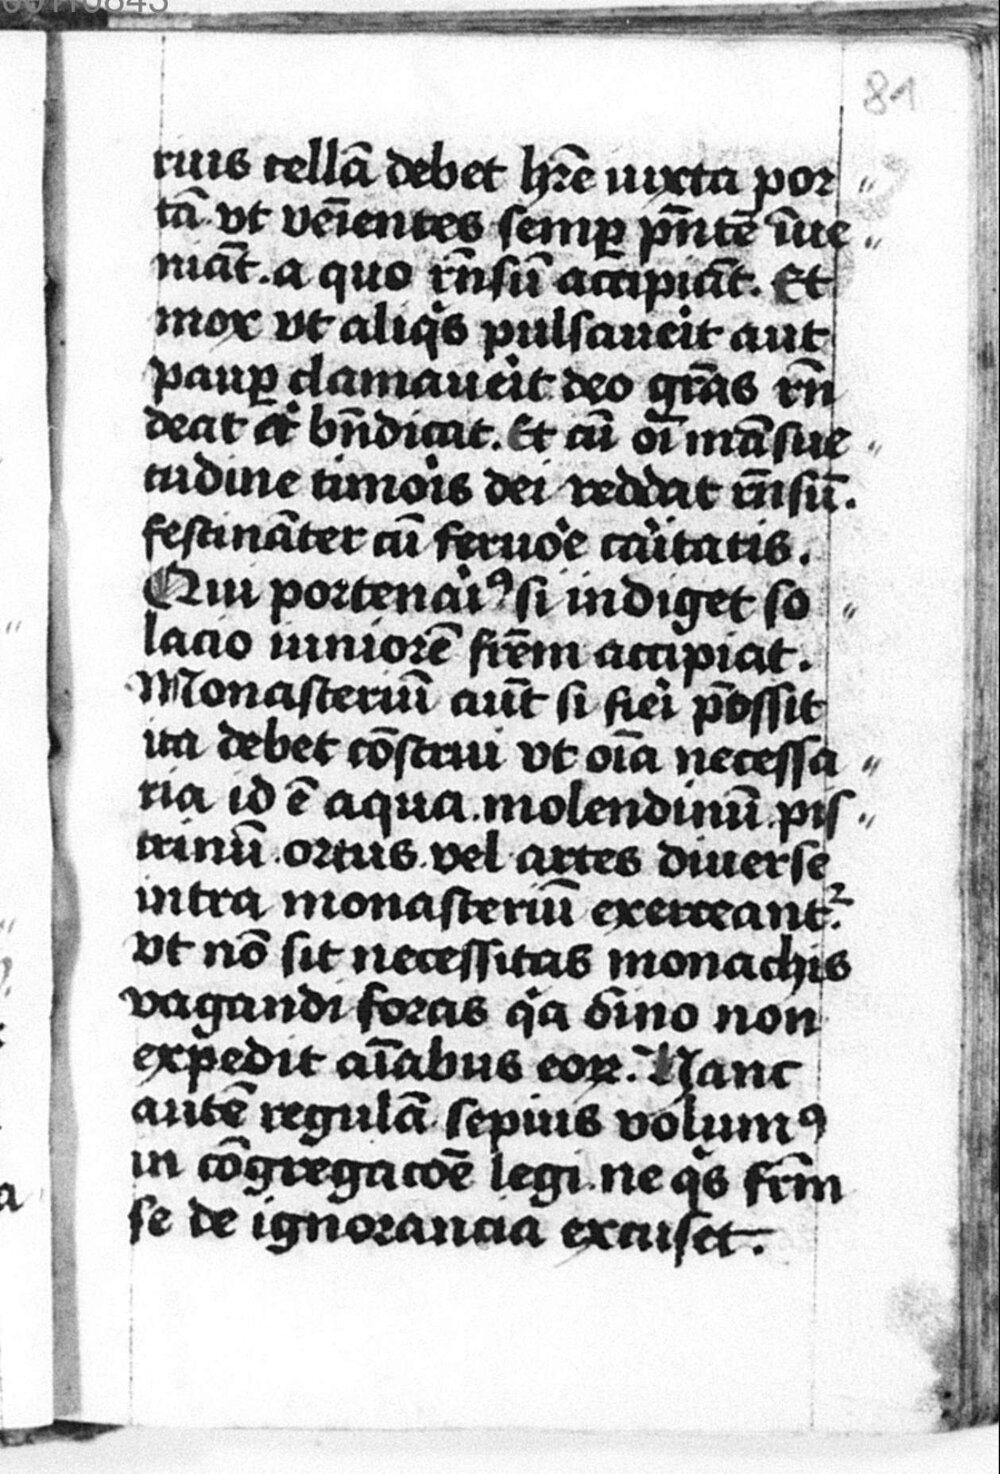 81
rius cellā debet hr̄e iuxta por〃
tā vt vēientes semꝑ pn̄tē īue〃
niāt. a quo rn̄sū accipiāt. Et
mox vt aliqͥs pulsaueit aut
pauꝑ clamaueit deo gr̄as rn̄
deat aͭ bn̄dicat. Et cū oī māsue〃
tudine timoͥs dei reddat rn̄sū.
festināter cū feruoͤe caͥtatis.
Qui portenaͥꝰ si indiget so〃
lacio iuniorē frēm accipiat.
Monasteriū aūt si fieͥ possit
ita debet cōstrui vt oīa necessa〃
ria id ē aqua. molendinū. pis〃
trinū. ortus. vel artes diuerse
intra monasteriū exerceantᷣ.
vt nō sit necessitas monachis
vagandi foras qͥa oīno non
expedit aīabus eoꝝ. Hanc
autē regulā sepius volumꝰ
in cōgregacōe legi. ne qͥs frm̄
se de ignorancia excuset.